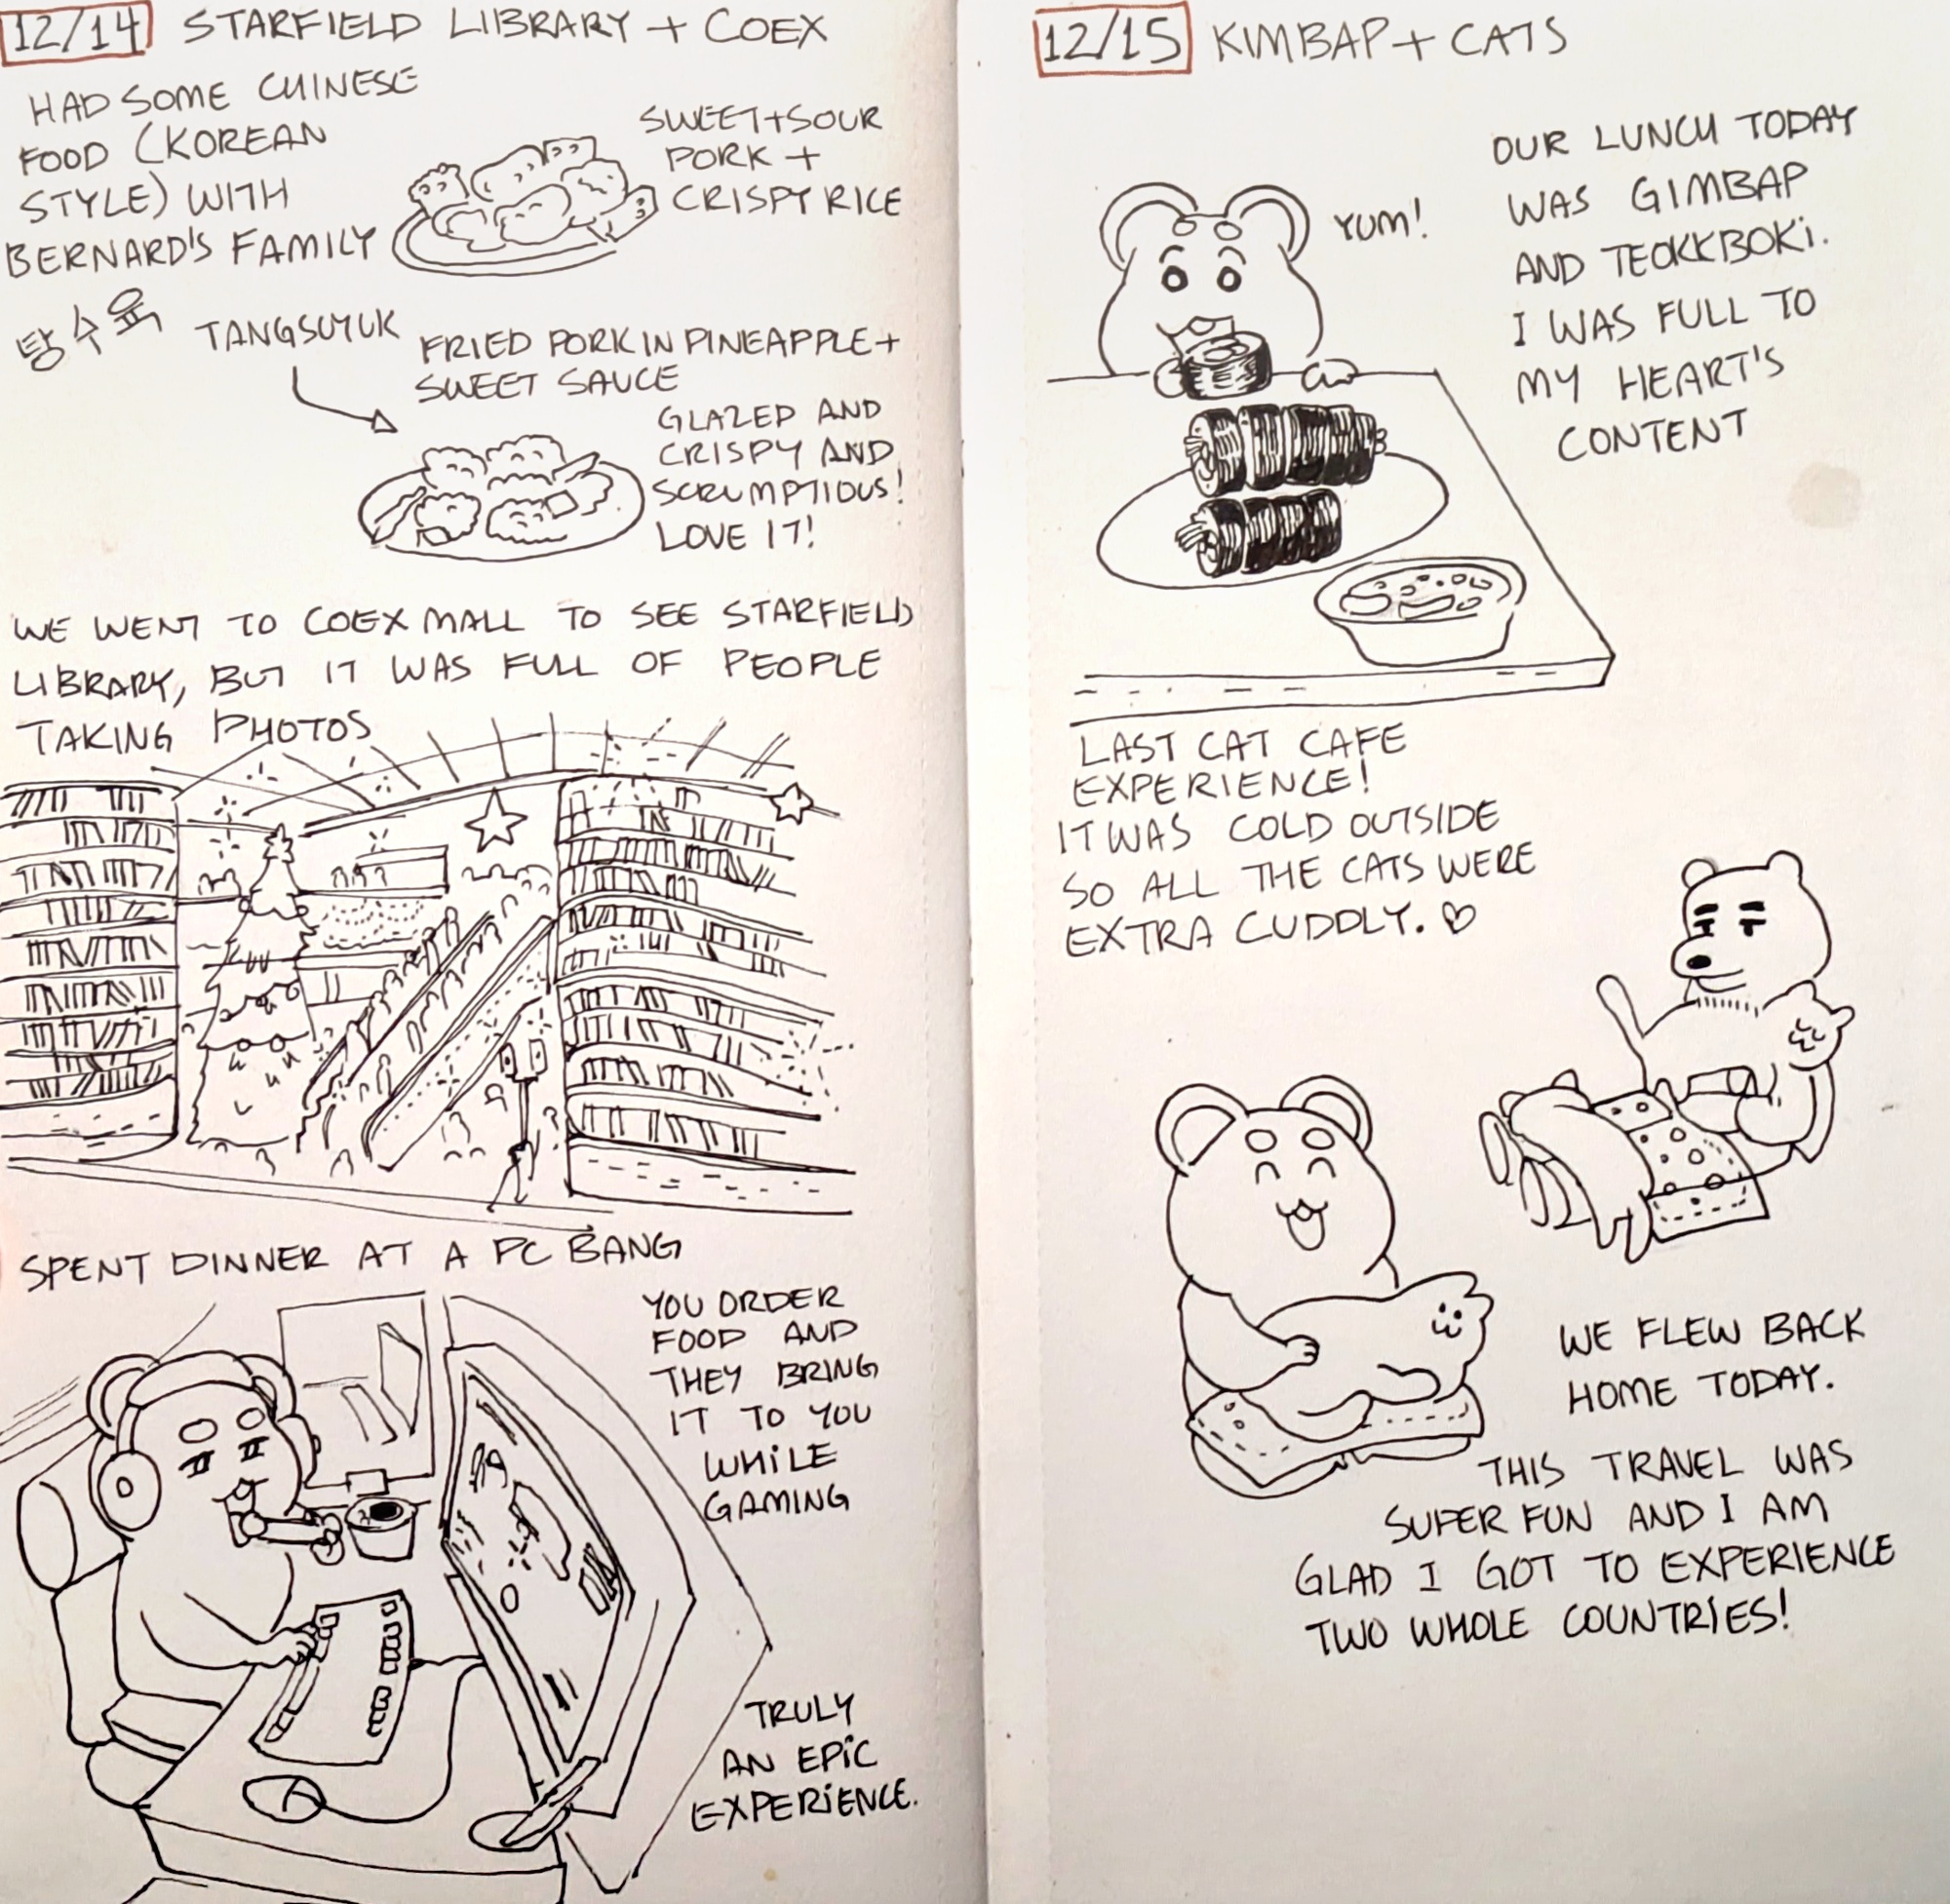 12/14 STARFIELD LIBRARY + COEX
HAD SOME CHINESE
FOOD (KOREAN
STYLE) WITH
BERNARD'S FAMILY
SWEET+SOUR
PORK +
CRISPY RICE
탕수육 TANGSUYUK
FRIED PORK IN PINEAPPLE+
SWEET SAUCE
GLAZED AND
CRISPY AND
SCRUMPTIOUS!
LOVE IT!
WE WENT TO COEX MALL TO SEE STARFIELD
LIBRARY, BUT IT WAS FULL OF PEOPLE
TAKING PHOTOS
SPENT DINNER AT A PC BANG
YOU ORDER
FOOD AND
THEY BRING
IT TO YOU
WHILE
GAMING
TRULY
AN EPIC
EXPERIENCE.
12/15 KIMBAP + CATS
YUM!
OUR LUNCH TODAY
WAS GIMBAP
AND TEOKKBOKi.
I WAS FULL TO
MY HEART'S
CONTENT
LAST CAT CAFE
EXPERIENCE!
IT WAS COLD OUTSIDE
SO ALL THE CATS WERE
EXTRA CUDDLY. ♡
WE FLEW BACK
HOME TODAY.
THIS TRAVEL WAS
SUPER FUN AND I AM
GLAD I GOT TO EXPERIENCE
TWO WHOLE COUNTRIES!